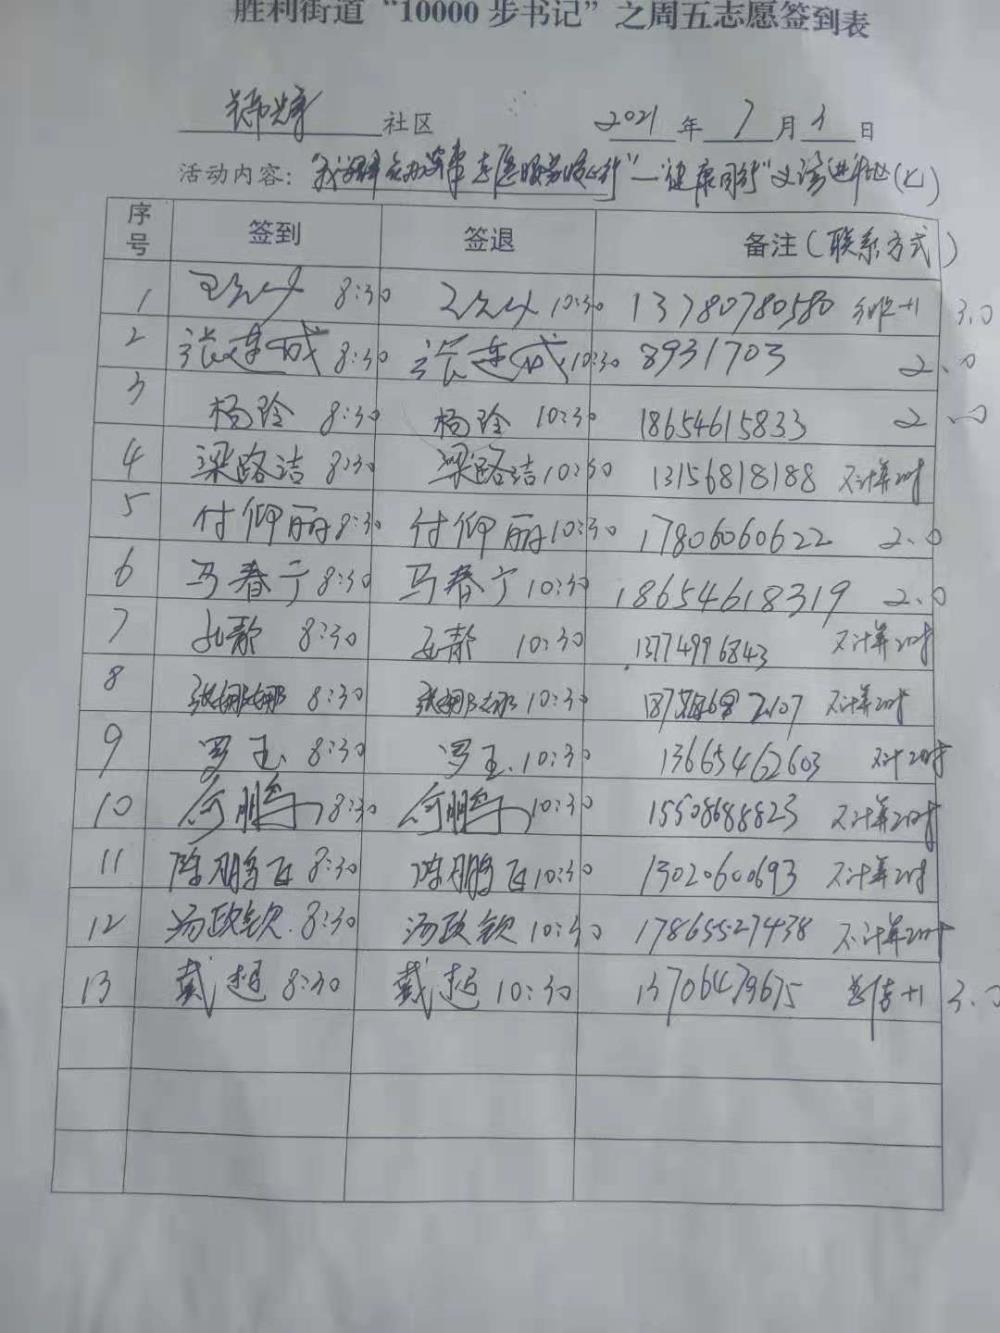 胜利街道“10000步书记”之周五志愿签到表
社区 2021年7月3日
活动内容：“我为群众办实事 志愿服务 ”—“健康同行”义诊进社区(七)
序号 签到 签退 备注(联系方式)
1 8:30 10:30 13780780580 +1 3.0
2 张连成 8:30 张连成 10:30 8931703 2.0
3 杨玲 8:30 杨玲 10:30 18654615833 2.0
4 梁路洁 8:30 梁路洁 10:30 13156818188 不计算时
5 付仰丽 8:30 付仰丽 10:30 17806060622 2.0
6 马春宁 8:30 马春宁 10:30 18654618319 2.0
7 静 8:30 静 10:30 13774996843 不计算时
8 张娜娜 8:30 张娜娜 10:30 不计算时
9 罗玉 8:30 罗玉 10:30 13665462603 不计时
10 何鹏 8:30 何鹏 10:30 15508688823 不计算时
11 陈鹏飞 8:30 陈鹏飞 10:30 13020600693 不计算时
12 汤政钦 8:30 汤政钦 10:30 17865527438 不计算时
13 戴超 8:30 戴超 10:30 13706479675 宣传+1 3.0